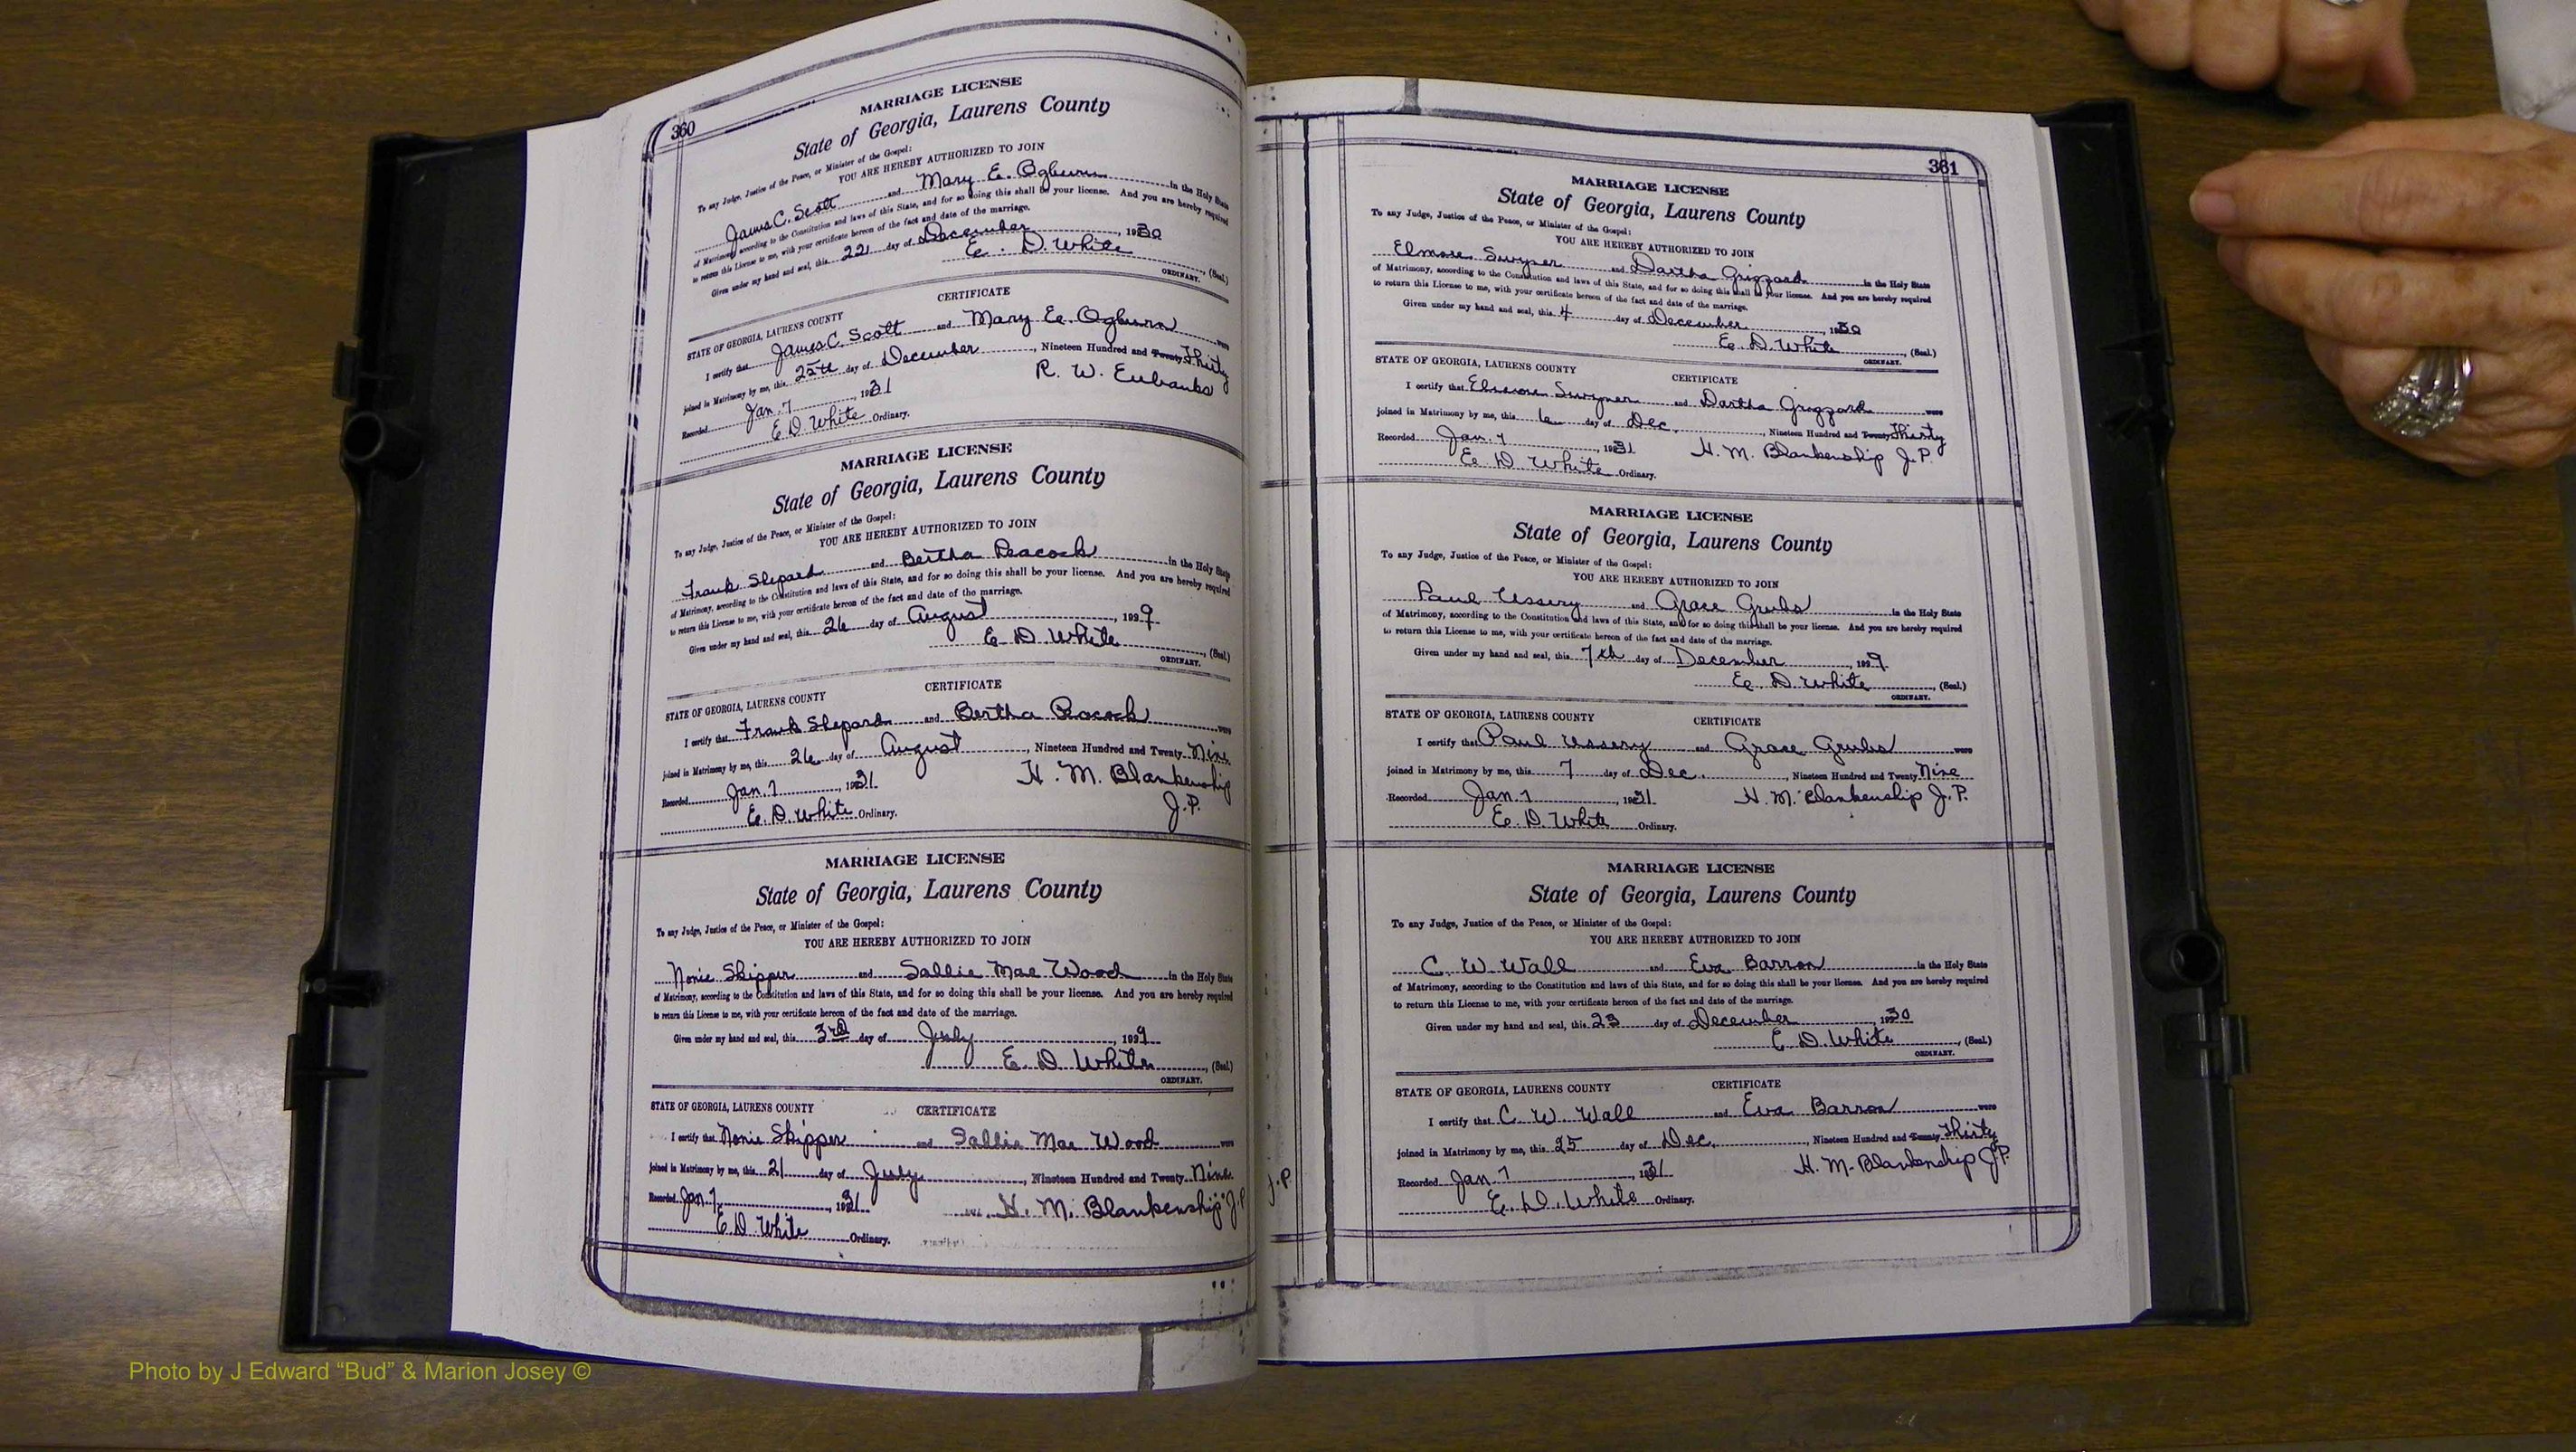 360
MARRIAGE LICENSE
State of Georgia, Laurens County
To any Judge, Justice of the Peace, or Minister of the Gospel:
YOU ARE HEREBY AUTHORIZED TO JOIN
James C. Scott and Mary E. Ogburn in the Holy State
of Matrimony, according to the Constitution and laws of this State, and for so doing this shall be your license. And you are hereby required
to return this License to me, with your certificate hereon of the fact and date of the marriage.
Given under my hand and seal, this 22 day of December, 1930
E. D. White, (Seal.)
ORDINARY.
CERTIFICATE
STATE OF GEORGIA, LAURENS COUNTY
I certify that James C. Scott and Mary E. Ogburn were
joined in Matrimony by me, this 25th day of December, Nineteen Hundred and Twenty Thirty
Recorded Jan. 7, 1931 R. W. Eubanks
E. D. White Ordinary.
MARRIAGE LICENSE
State of Georgia, Laurens County
To any Judge, Justice of the Peace, or Minister of the Gospel:
YOU ARE HEREBY AUTHORIZED TO JOIN
Frank Shepard and Bertha Peacock in the Holy State
of Matrimony, according to the Constitution and laws of this State, and for so doing this shall be your license. And you are hereby required
to return this License to me, with your certificate hereon of the fact and date of the marriage.
Given under my hand and seal, this 26 day of August, 1929
E. D. White, (Seal.)
ORDINARY.
CERTIFICATE
STATE OF GEORGIA, LAURENS COUNTY
I certify that Frank Shepard and Bertha Peacock were
joined in Matrimony by me, this 26 day of August, Nineteen Hundred and Twenty Nine
Recorded Jan. 7, 1931 H. M. Blankenship
E. D. White Ordinary. J.P.
MARRIAGE LICENSE
State of Georgia, Laurens County
To any Judge, Justice of the Peace, or Minister of the Gospel:
YOU ARE HEREBY AUTHORIZED TO JOIN
Nonie Skipper and Sallie Mae Wood in the Holy State
of Matrimony, according to the Constitution and laws of this State, and for so doing this shall be your license. And you are hereby required
to return this License to me, with your certificate hereon of the fact and date of the marriage.
Given under my hand and seal, this 3rd day of July, 1929
E. D. White, (Seal.)
ORDINARY.
STATE OF GEORGIA, LAURENS COUNTY CERTIFICATE
I certify that Nonie Skipper and Sallie Mae Wood were
joined in Matrimony by me, this 21 day of July, Nineteen Hundred and Twenty Nine
Recorded Jan 7, 1931 H. M. Blankenship J.P.
E. D. White Ordinary.
361
MARRIAGE LICENSE
State of Georgia, Laurens County
To any Judge, Justice of the Peace, or Minister of the Gospel:
YOU ARE HEREBY AUTHORIZED TO JOIN
and Dartha Grizzard in the Holy State
of Matrimony, according to the Constitution and laws of this State, and for so doing this shall be your license. And you are hereby required
to return this License to me, with your certificate hereon of the fact and date of the marriage.
Given under my hand and seal, this 4 day of December, 1930
E. D. White, (Seal.)
ORDINARY.
STATE OF GEORGIA, LAURENS COUNTY CERTIFICATE
I certify that and Dartha Grizzard were
joined in Matrimony by me, this 6 day of Dec., Nineteen Hundred and Twenty Thirty
Recorded Jan. 7, 1931 H. M. Blankenship J.P.
E. D. White Ordinary.
MARRIAGE LICENSE
State of Georgia, Laurens County
To any Judge, Justice of the Peace, or Minister of the Gospel:
YOU ARE HEREBY AUTHORIZED TO JOIN
Paul Ussery and Grace Grubs in the Holy State
of Matrimony, according to the Constitution and laws of this State, and for so doing this shall be your license. And you are hereby required
to return this License to me, with your certificate hereon of the fact and date of the marriage.
Given under my hand and seal, this 7th day of December, 1929
E. D. White, (Seal.)
ORDINARY.
STATE OF GEORGIA, LAURENS COUNTY CERTIFICATE
I certify that Paul Ussery and Grace Grubs were
joined in Matrimony by me, this 7 day of Dec., Nineteen Hundred and Twenty Nine
Recorded Jan. 7, 1931 H. M. Blankenship J.P.
E. D. White Ordinary.
MARRIAGE LICENSE
State of Georgia, Laurens County
To any Judge, Justice of the Peace, or Minister of the Gospel:
YOU ARE HEREBY AUTHORIZED TO JOIN
C. W. Wall and Eva Barron in the Holy State
of Matrimony, according to the Constitution and laws of this State, and for so doing this shall be your license. And you are hereby required
to return this License to me, with your certificate hereon of the fact and date of the marriage.
Given under my hand and seal, this 23 day of December, 1930
E. D. White, (Seal.)
ORDINARY.
STATE OF GEORGIA, LAURENS COUNTY CERTIFICATE
I certify that C. W. Wall and Eva Barron were
joined in Matrimony by me, this 25 day of Dec., Nineteen Hundred and Twenty Thirty
Recorded Jan 7, 1931 H. M. Blankenship J.P.
E. D. White Ordinary.
J.P.
Photo by J Edward “Bud” & Marion Josey ©